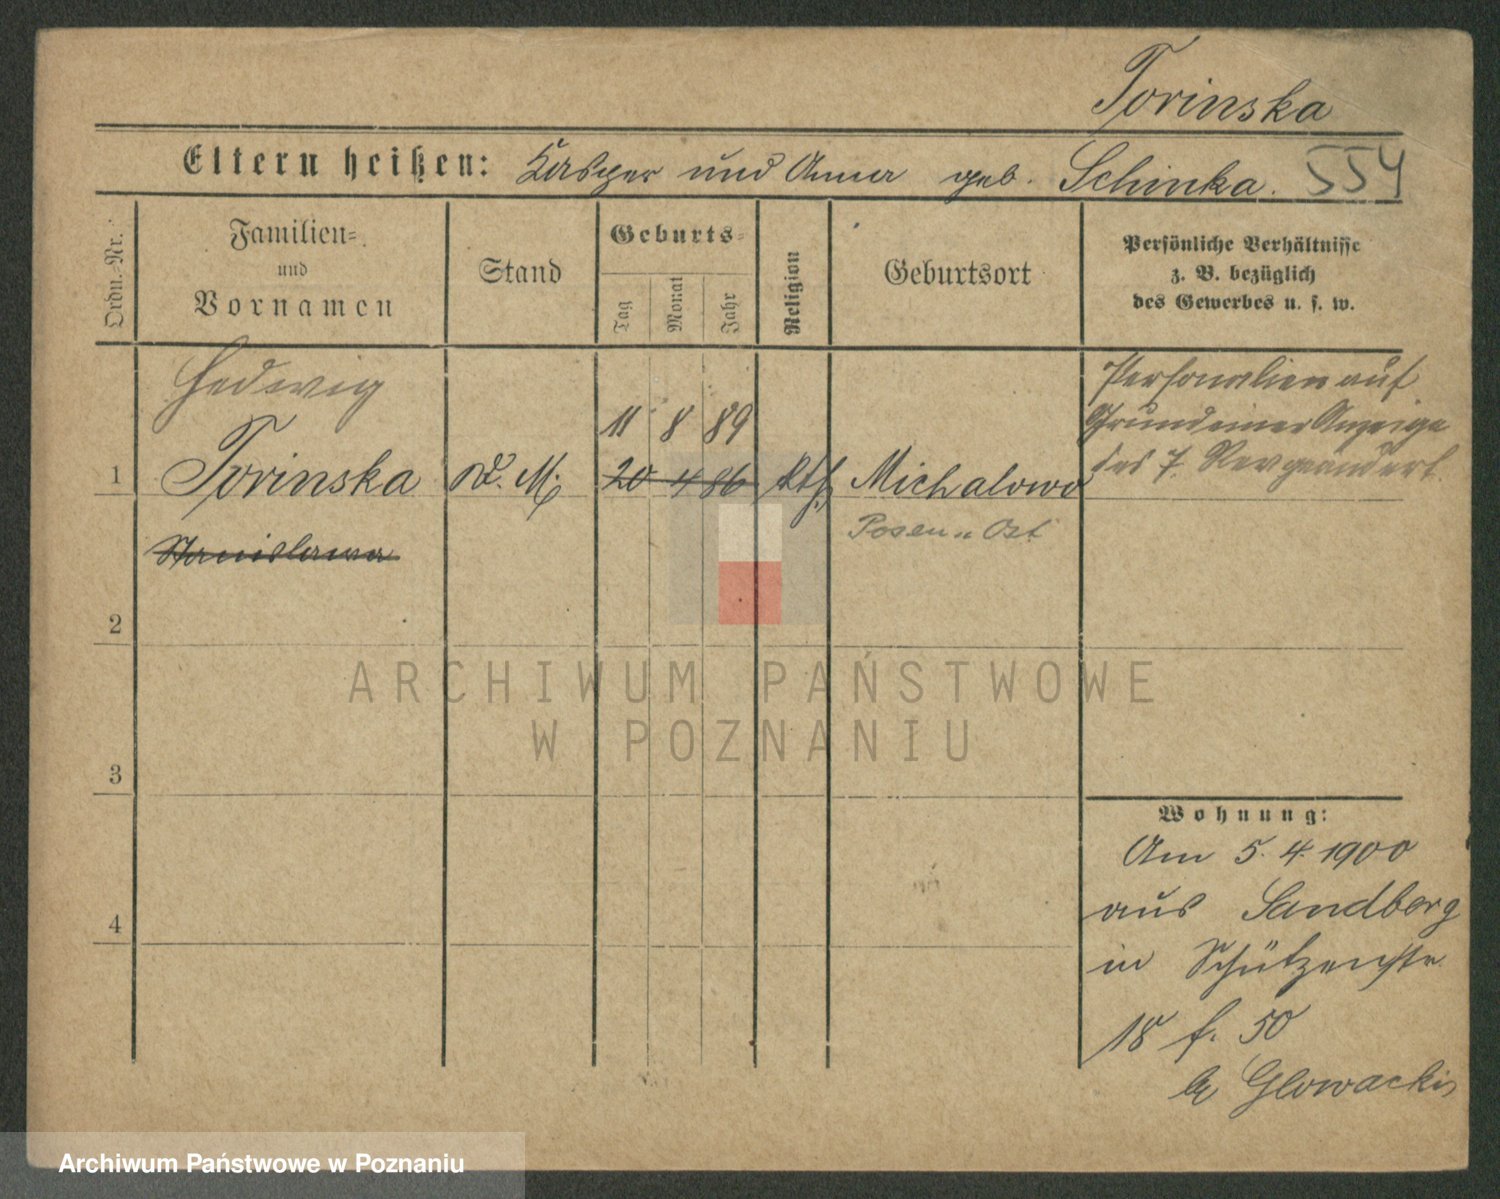 Torinska
Eltern heißen: Kasper und Anna geb. Schinka. 554
Ordn.-Nr.
Familien-
und
Vornamen
Stand
Geburts-
Tag
Monat
Jahr
Religion
Geburtsort
Persönliche Verhältnisse
z. B. bezüglich
des Gewerbes u. s. w.
Hedwig
11 8 89
Personalien auf
Grund einer Anzeige
des 7. Rev geändert.
1 Torinska d. M. 20 4 86 kth Michalowo
Posen-Ost
Stanislawa
2
3
4
Wohnung:
Am 5. 4. 1900
aus Sandberg
in Schützenstr.
18 f. 50
b Glowacki
ARCHIWUM PAŃSTWOWE
W POZNANIU
Archiwum Państwowe w Poznaniu